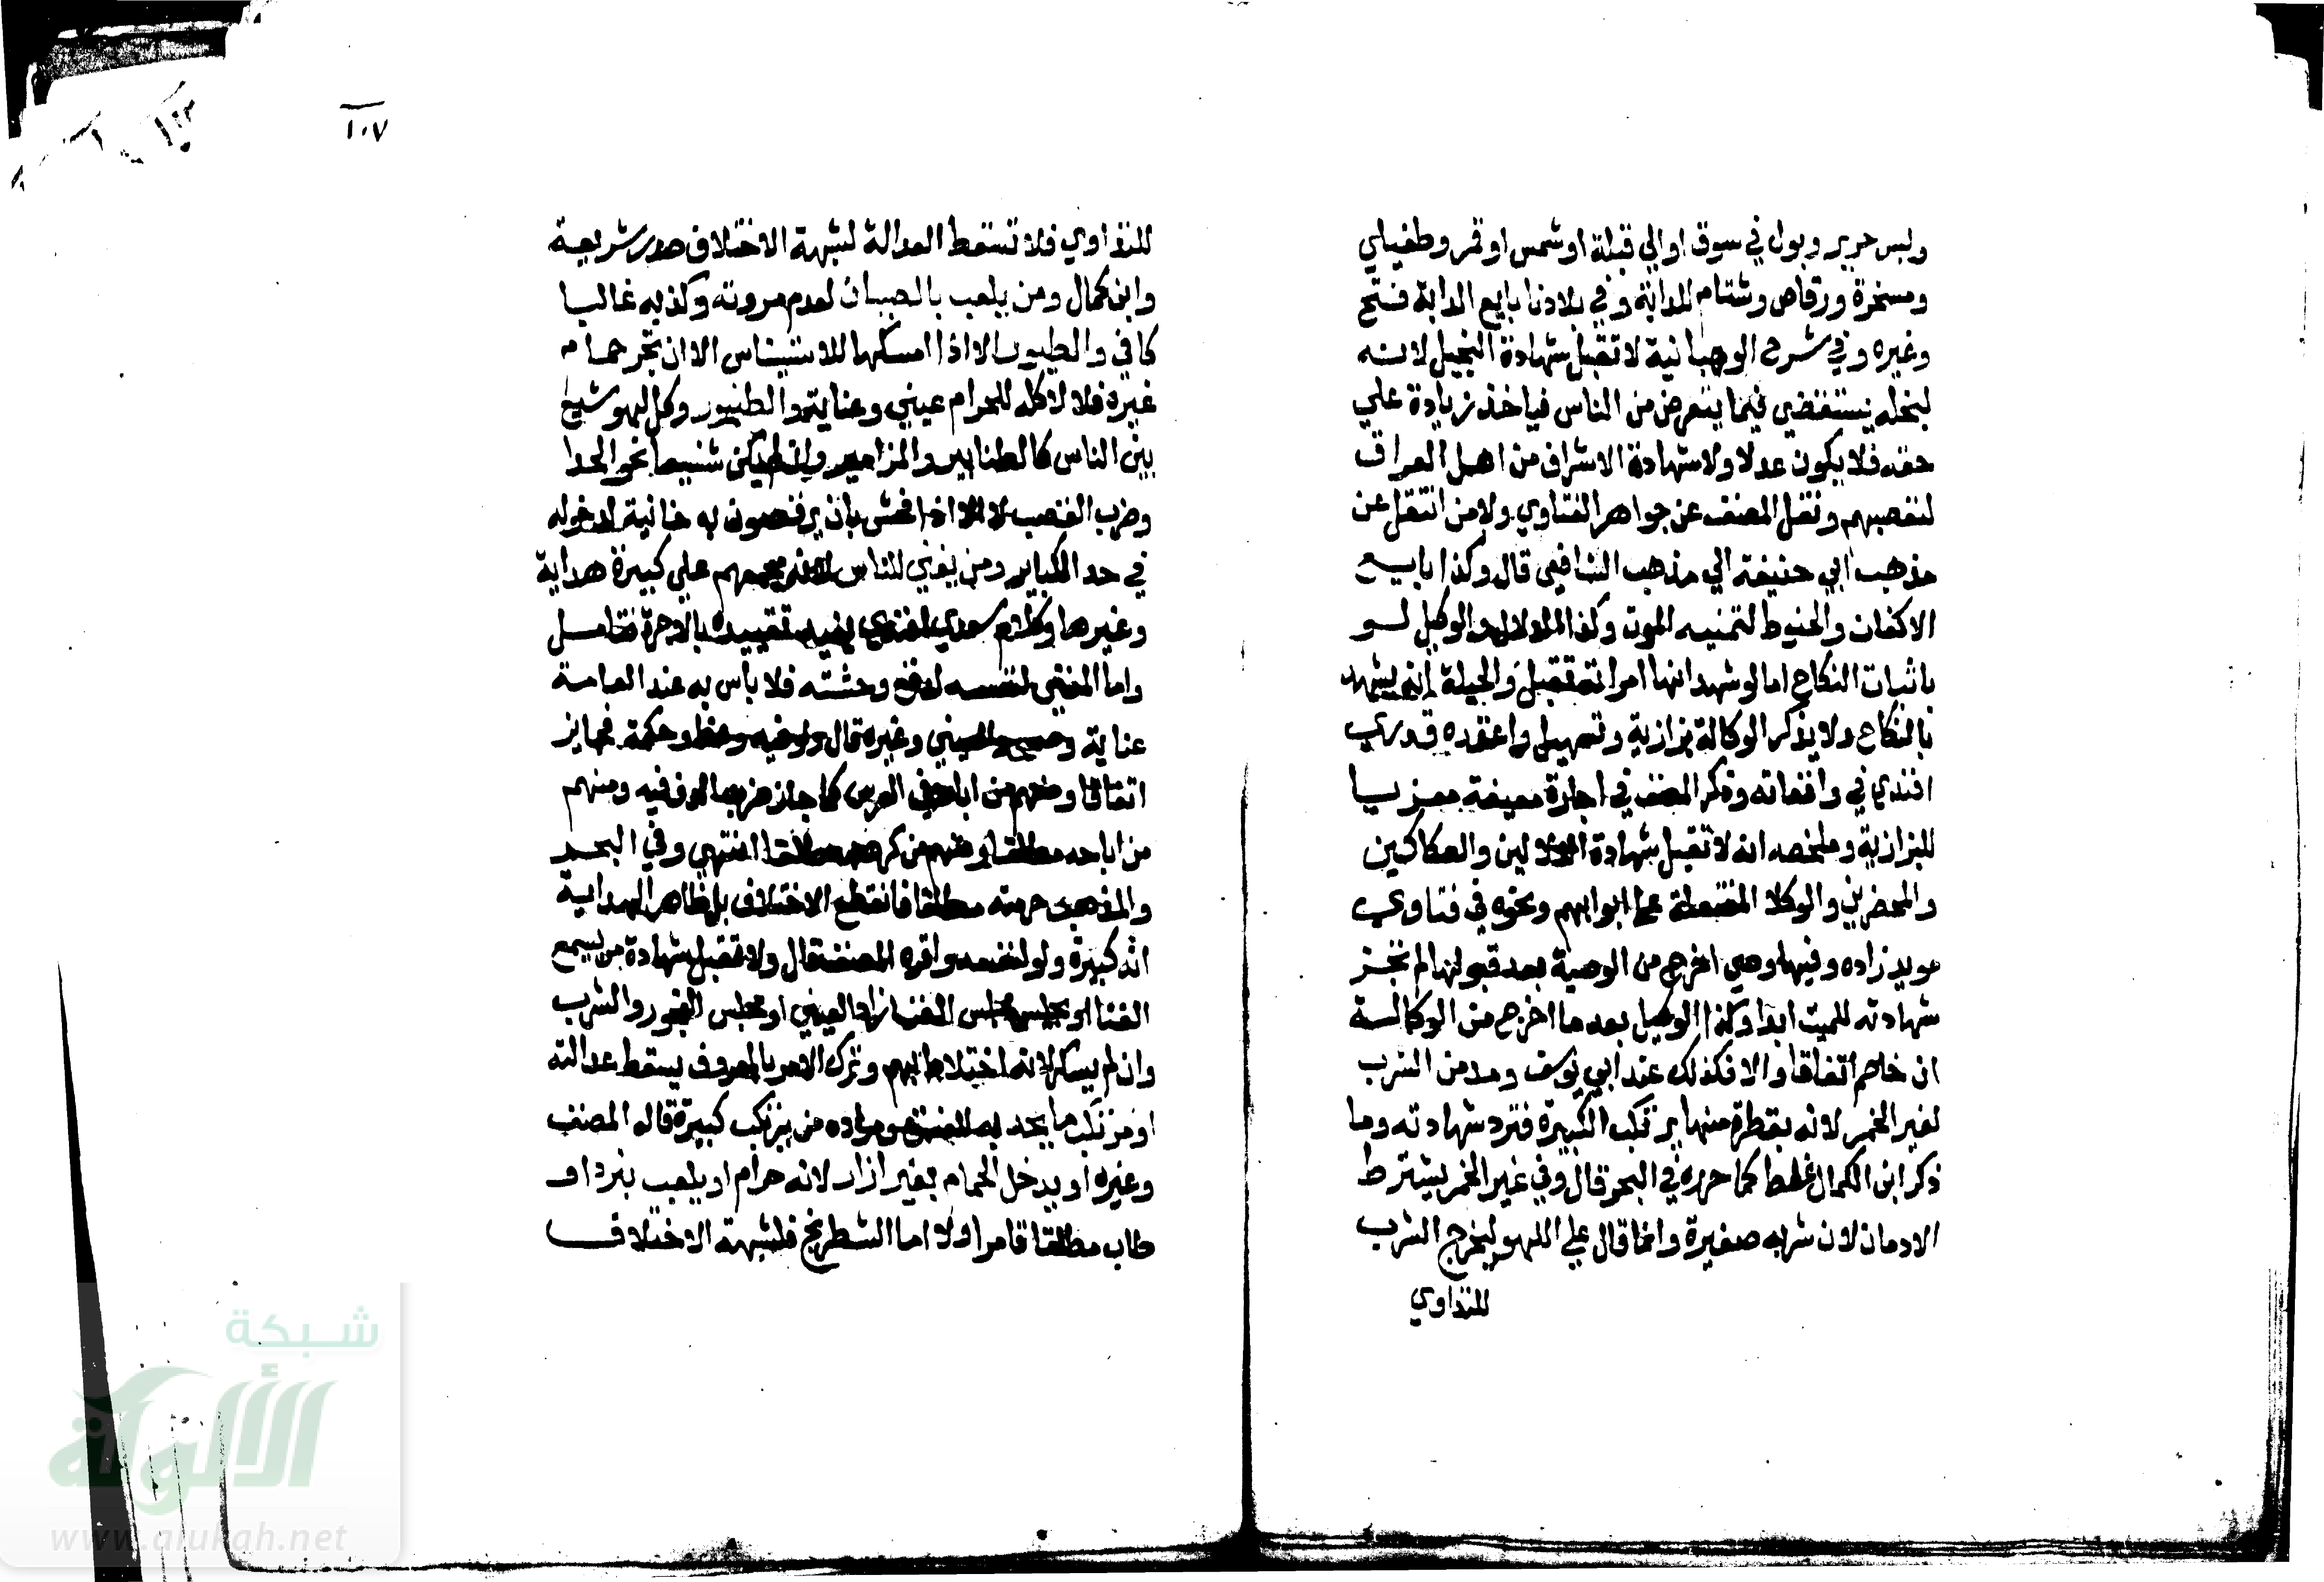 ولبس حرير وبول في سوق او الي قبلة او شمس او قمر وطفيلي
ومسخرة ورقاص وشتام للدابة وفي بلادنا بايع الدابة فتح
وغيره وفي شرح الوهبانية لا تقبل شهادة البخيل لانه
لبخله يستقضي فيما يتعرض من الناس فياخذ زيادة علي
حقه فلا يكون عدلا ولا شهادة الاشراف من اهل العراق
لتعصبهم ونقل المصنف عن جواهر الفتاوي ولا من انتقل عن
مذهب ابي حنيفة الي مذهب الشافعي قال وكذا بايع
الاكفان والحنوط لتمنيه الموت وكذا الدلال والوكيل لو
باثبات النكاح اما لو شهد انها امراته تقبل والحيلة انه يشهد
بالنكاح ولا يذكر الوكالة بزازية وتسهيل واعتمده قدري
افندي في واقعاته وذكر المصنف في اجارة معينه معزيا
للبزازية وملخصه انه لا تقبل شهادة الدلالين والصكاكين
والمحضرين والوكلا المفتعلة علي ابوابهم ونحوه في فتاوي
مويد زاده وفيها وصي اخرج من الوصية بعد قبولها لم تجز
شهادته للميت ابدا وكذا الوكيل بعد ما اخرج من الوكالة
ان خاصم اتفاقا والا فكذلك عند ابي يوسف ومدمن الشرب
لغير الخمر لانه بقطرة منها يرتكب الكبيرة فترد شهادته وما
ذكر ابن الكمال غلط كما حرره في البحر قال وفي غير الخمر يشترط
الادمان لان شربه صغيرة وانما قال علي اللهو ليخرج الشرب
للتداوي
١٠٧
للتداوي فلا تسقط العدالة لشبهة الاختلاف صدر شريعة
وابن كمال ومن يلعب بالصبيان لعدم مروته وكذبه غالبا
كافي والطيور الا اذا امسكها للاستيناس الا ان تجر حمام
غيره فلا لاكله للحرام عيني وعناية والطنبور وكل لهو شنيع
بين الناس كالطنابير والمزامير وان لم يكن شنيعا نحو الحدا
وضرب القصب لا الا اذا فحش بان يرقصون به خانية لدخوله
في حد الكباير ومن يغني للناس لانه يجمعهم علي كبيرة هداية
وغيرها وكلام سعدي افندي يفيد تقييده بالاجرة فتامل
واما المغني لنفسه لدفع وحشته فلا باس به عند العامة
عناية وصححه العيني وغيره قال ولو فيه وعظ وحكمة فجايز
اتفاقا ومنهم من اباحه في العرس كما جاز ضرب الدف فيه ومنهم
من اباحه مطلقا ومنهم من كرهه مطلقا انتهي وفي البحر
والمذهب حرمته مطلقا فانقطع الاختلاف بل ظاهر الهداية
انه كبيرة ولو لنفسه واقره المصنف قال ولا تقبل شهادة من يسمع
الغنا او يجلس مجلس الغنا زاد العيني او مجلس الفجور والشرب
وان لم يسكر لانه اختلاطه بهم وترك الامر بالمعروف يسقط عدالته
او مرتكب ما يحد به للفسق ومراده من يرتكب كبيرة قاله المصنف
وغيره او يدخل الحمام بغير ازار لانه حرام او يلعب بنرد او
طاب مطلقا قامر او لا اما الشطرنج فلشبهة الاختلاف
شبكة
الألوكة
www.alukah.net